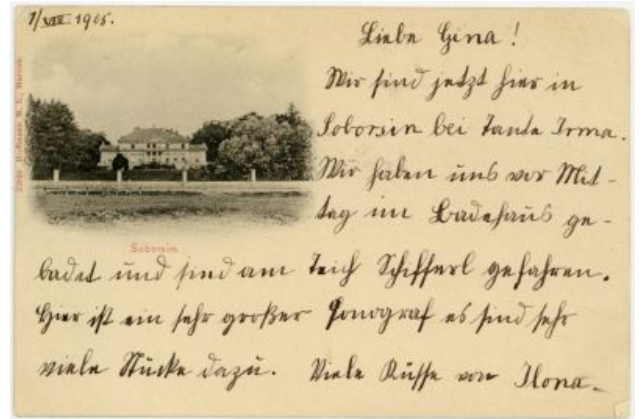 1/VIII 1905.
Liebe Gina!
Wir sind jetzt hier in
Soborsin bei Tante Irma.
Wir haben uns vor Mit-
tag im Badehaus ge-
Soborsin.
badet und sind am Teich Schifferl gefahren.
Hier ist ein sehr großer Fonograf es sind sehr
viele Stücke dazu. Viele Küsse von Ilona.